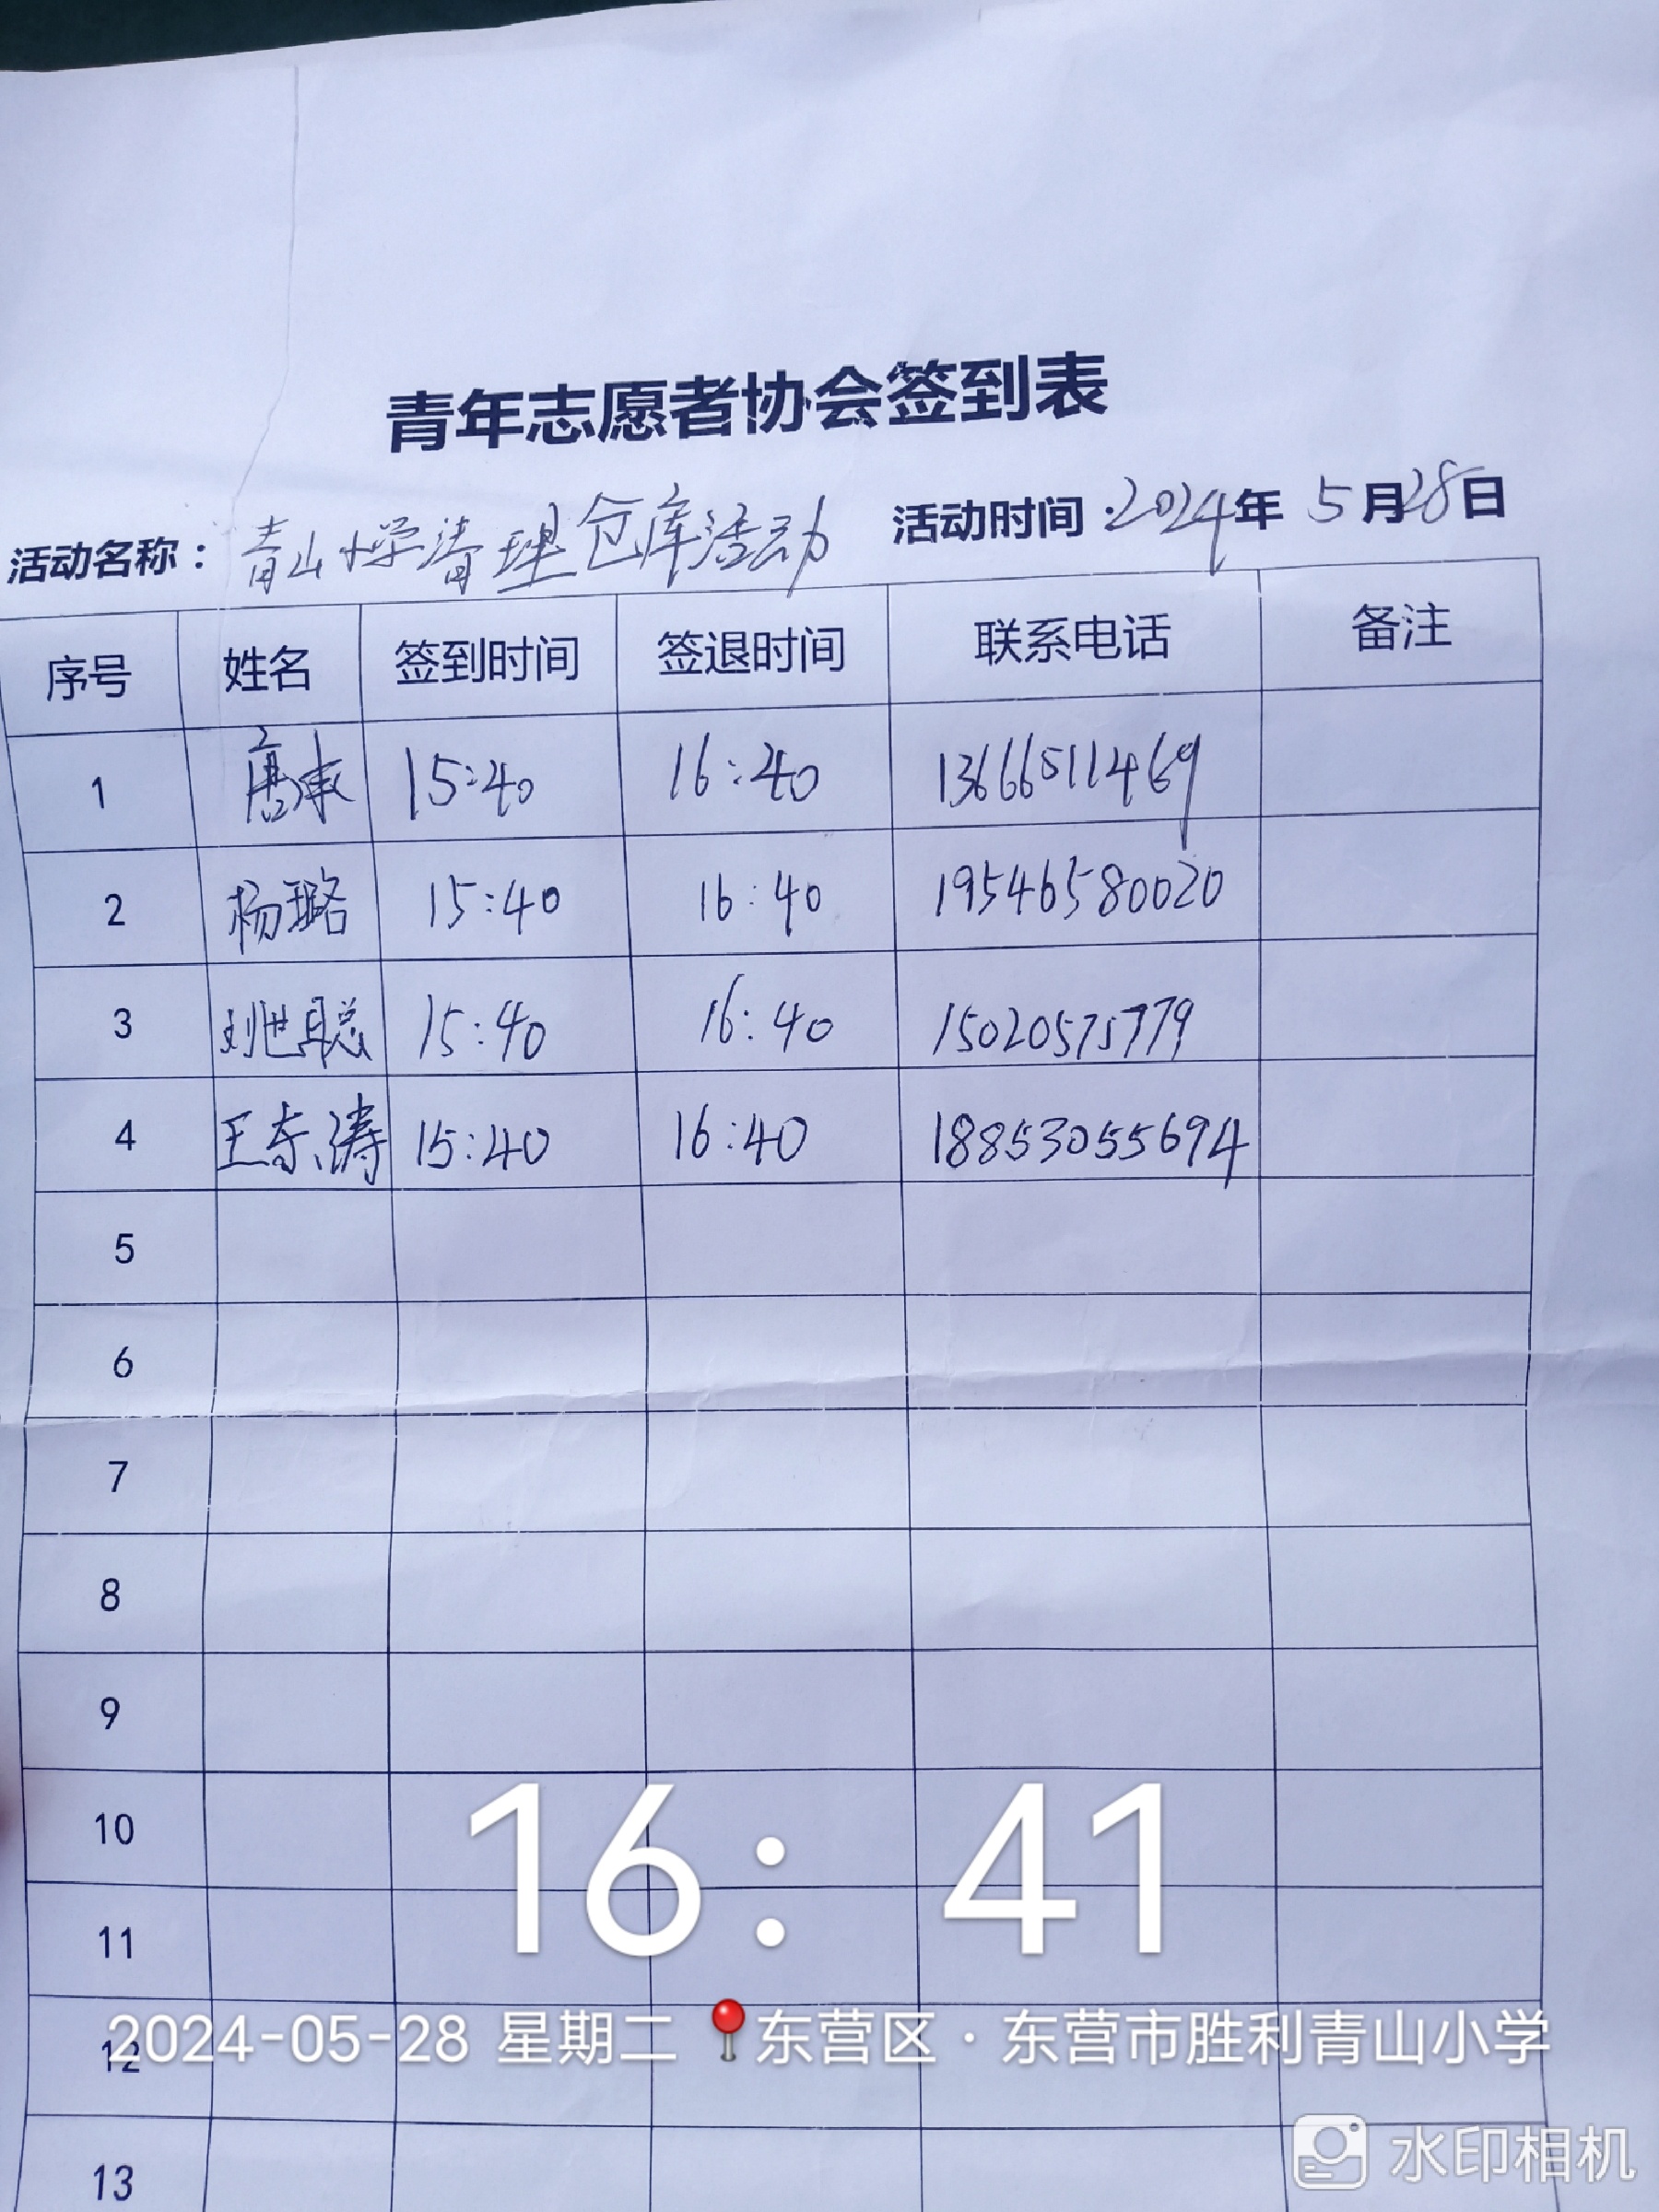 青年志愿者协会签到表
活动名称：青山小学清理仓库活动 活动时间：2024年5月28日
序号 姓名 签到时间 签退时间 联系电话 备注
1 15:40 16:40 13666511469
2 杨璐 15:40 16:40 19546580020
3 刘世聪 15:40 16:40 15020575779
4 王东涛 15:40 16:40 18853055694
5
6
7
8
9
10
11
12
13
16:41
2024-05-28 星期二 东营区·东营市胜利青山小学
水印相机